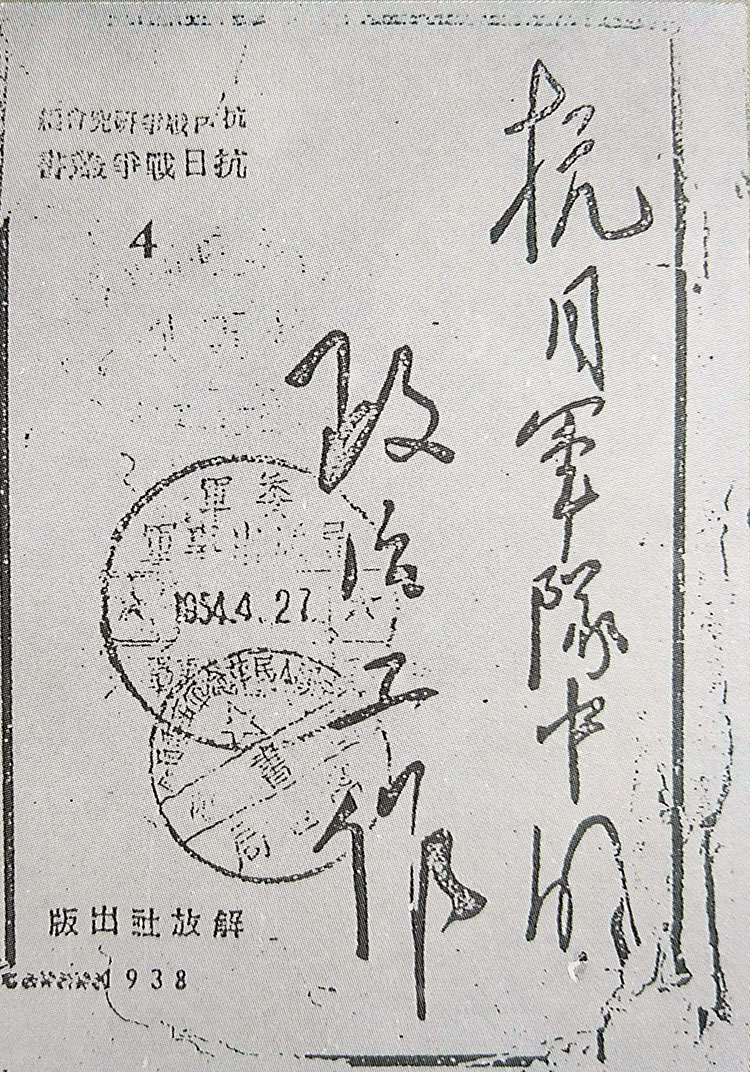 抗日軍隊中的
政治工作
抗日戰爭研究會編
抗日戰爭叢書
4
1954.4.27
解放社出版
1938